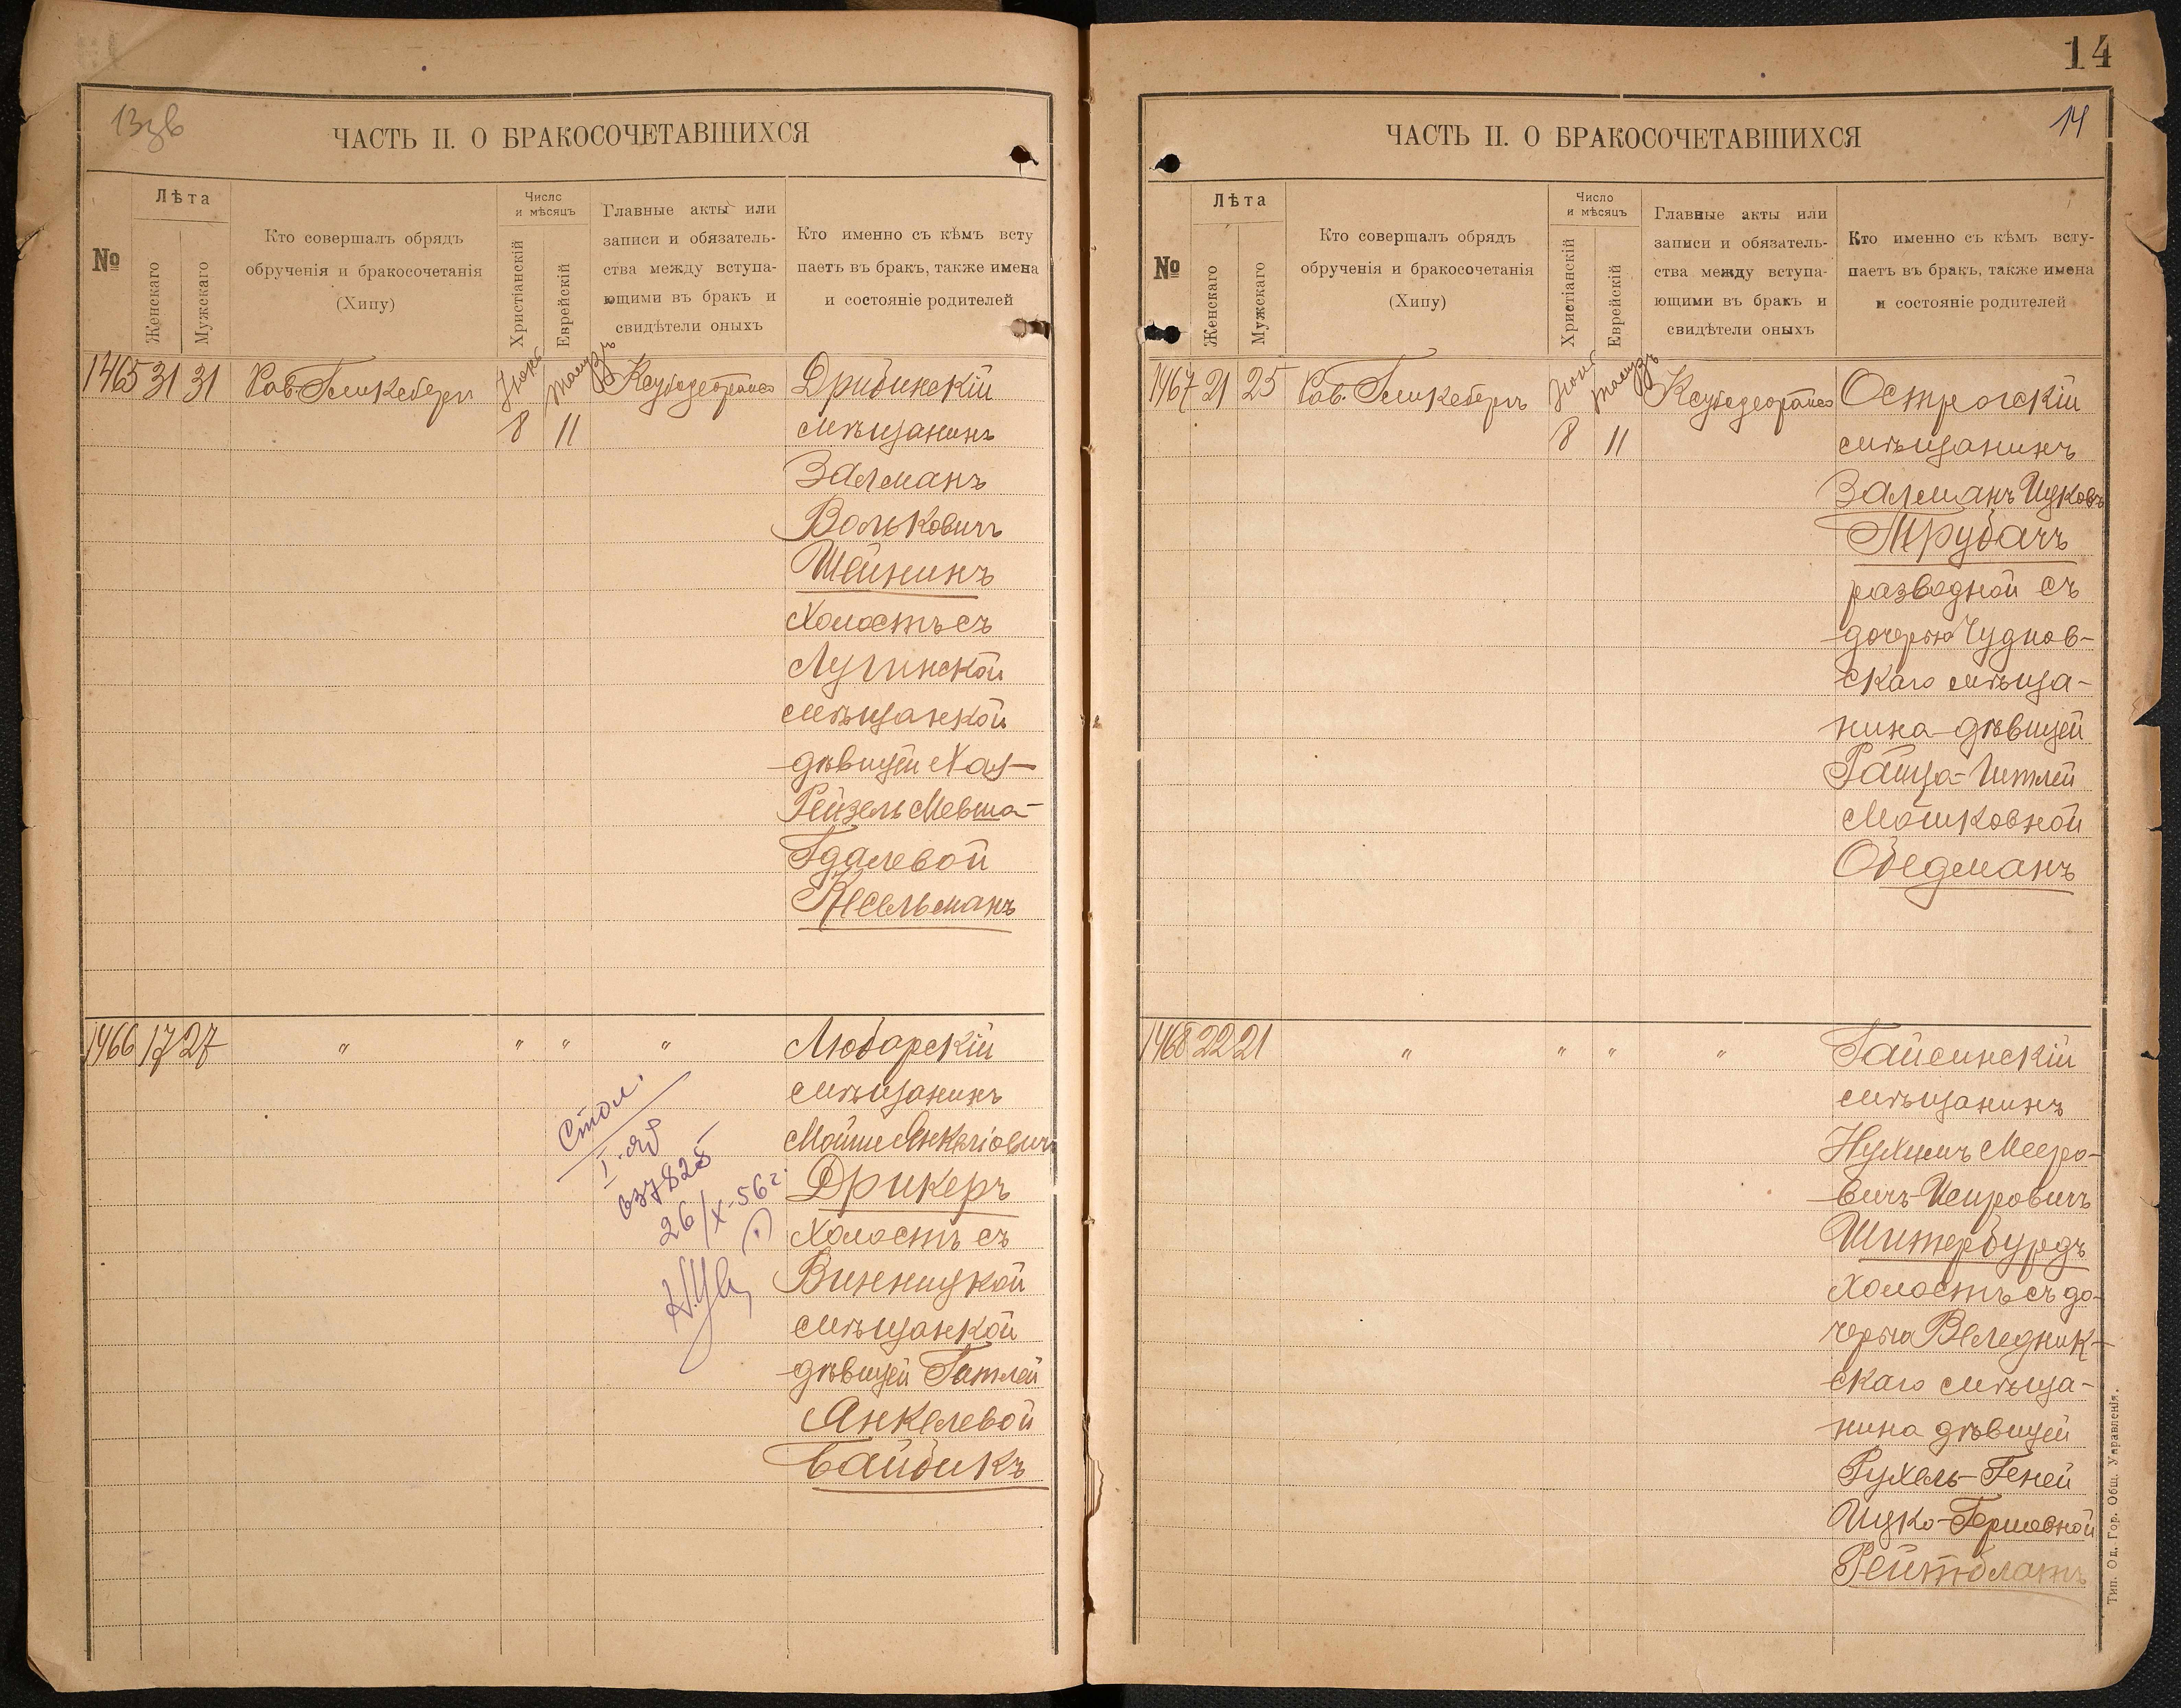 13зв
ЧАСТЬ II. О БРАКОСОЧЕТАВШИХСЯ
№
Лѣта
Женскаго
Мужскаго
Кто совершалъ обрядъ
обрученія и бракосочетанія
(Хипу)
Число
и мѣсяцъ
Христіанскій
Еврейскій
Главные акты или
записи и обязатель-
ства между вступа-
ющими въ бракъ и
свидѣтели оныхъ
Кто именно съ кѣмъ всту
паетъ въ бракъ, также имена
и состояніе родителей
1465 31 31 Рав. Гликсбергъ
8 11
Дрибинскій
мѣщанинъ
Залманъ
Вольковичъ
Шейнинъ
Холостъ съ
Лугинской
мѣщанкой
дѣвицей Хая-
Рейзель Мевша-
Гдалевой
Кесельманъ
1466 17 27 " " " "
Любарскій
мѣщанинъ
Мойше Янкеліовичъ
Дрикеръ
Холостъ съ
Винницкой
мѣщанкой
дѣвицей Гитлей
Янкелевой
Байбикъ
037825
26/X-56 г.
14
14
ЧАСТЬ II. О БРАКОСОЧЕТАВШИХСЯ
№
Лѣта
Женскаго
Мужскаго
Кто совершалъ обрядъ
обрученія и бракосочетанія
(Хипу)
Число
и мѣсяцъ
Христіанскій
Еврейскій
Главные акты или
записи и обязатель-
ства между вступа-
ющими въ бракъ и
свидѣтели оныхъ
Кто именно съ кѣмъ всту-
паетъ въ бракъ, также имена
и состояніе родителей
1467 21 25 Рав. Гликсбергъ
8 11
Острогскій
мѣщанинъ
Залманъ Ицковъ
Трубачъ
разводной съ
дочерью Чуднов-
скаго мѣща-
нина дѣвицей
Мошковной
Обедманъ
1468 22 21 " " " "
Гайсинскій
мѣщанинъ
Нухимъ Мееро-
вичъ-Исировичъ
Шитербурдъ
Холостъ съ до-
черью Веледник-
скаго мѣща-
нина дѣвицей
Рухель-Геней
Ицко-Гершовной
Рейтблатъ
Тип. Од. Гор. Общ. Управленія.